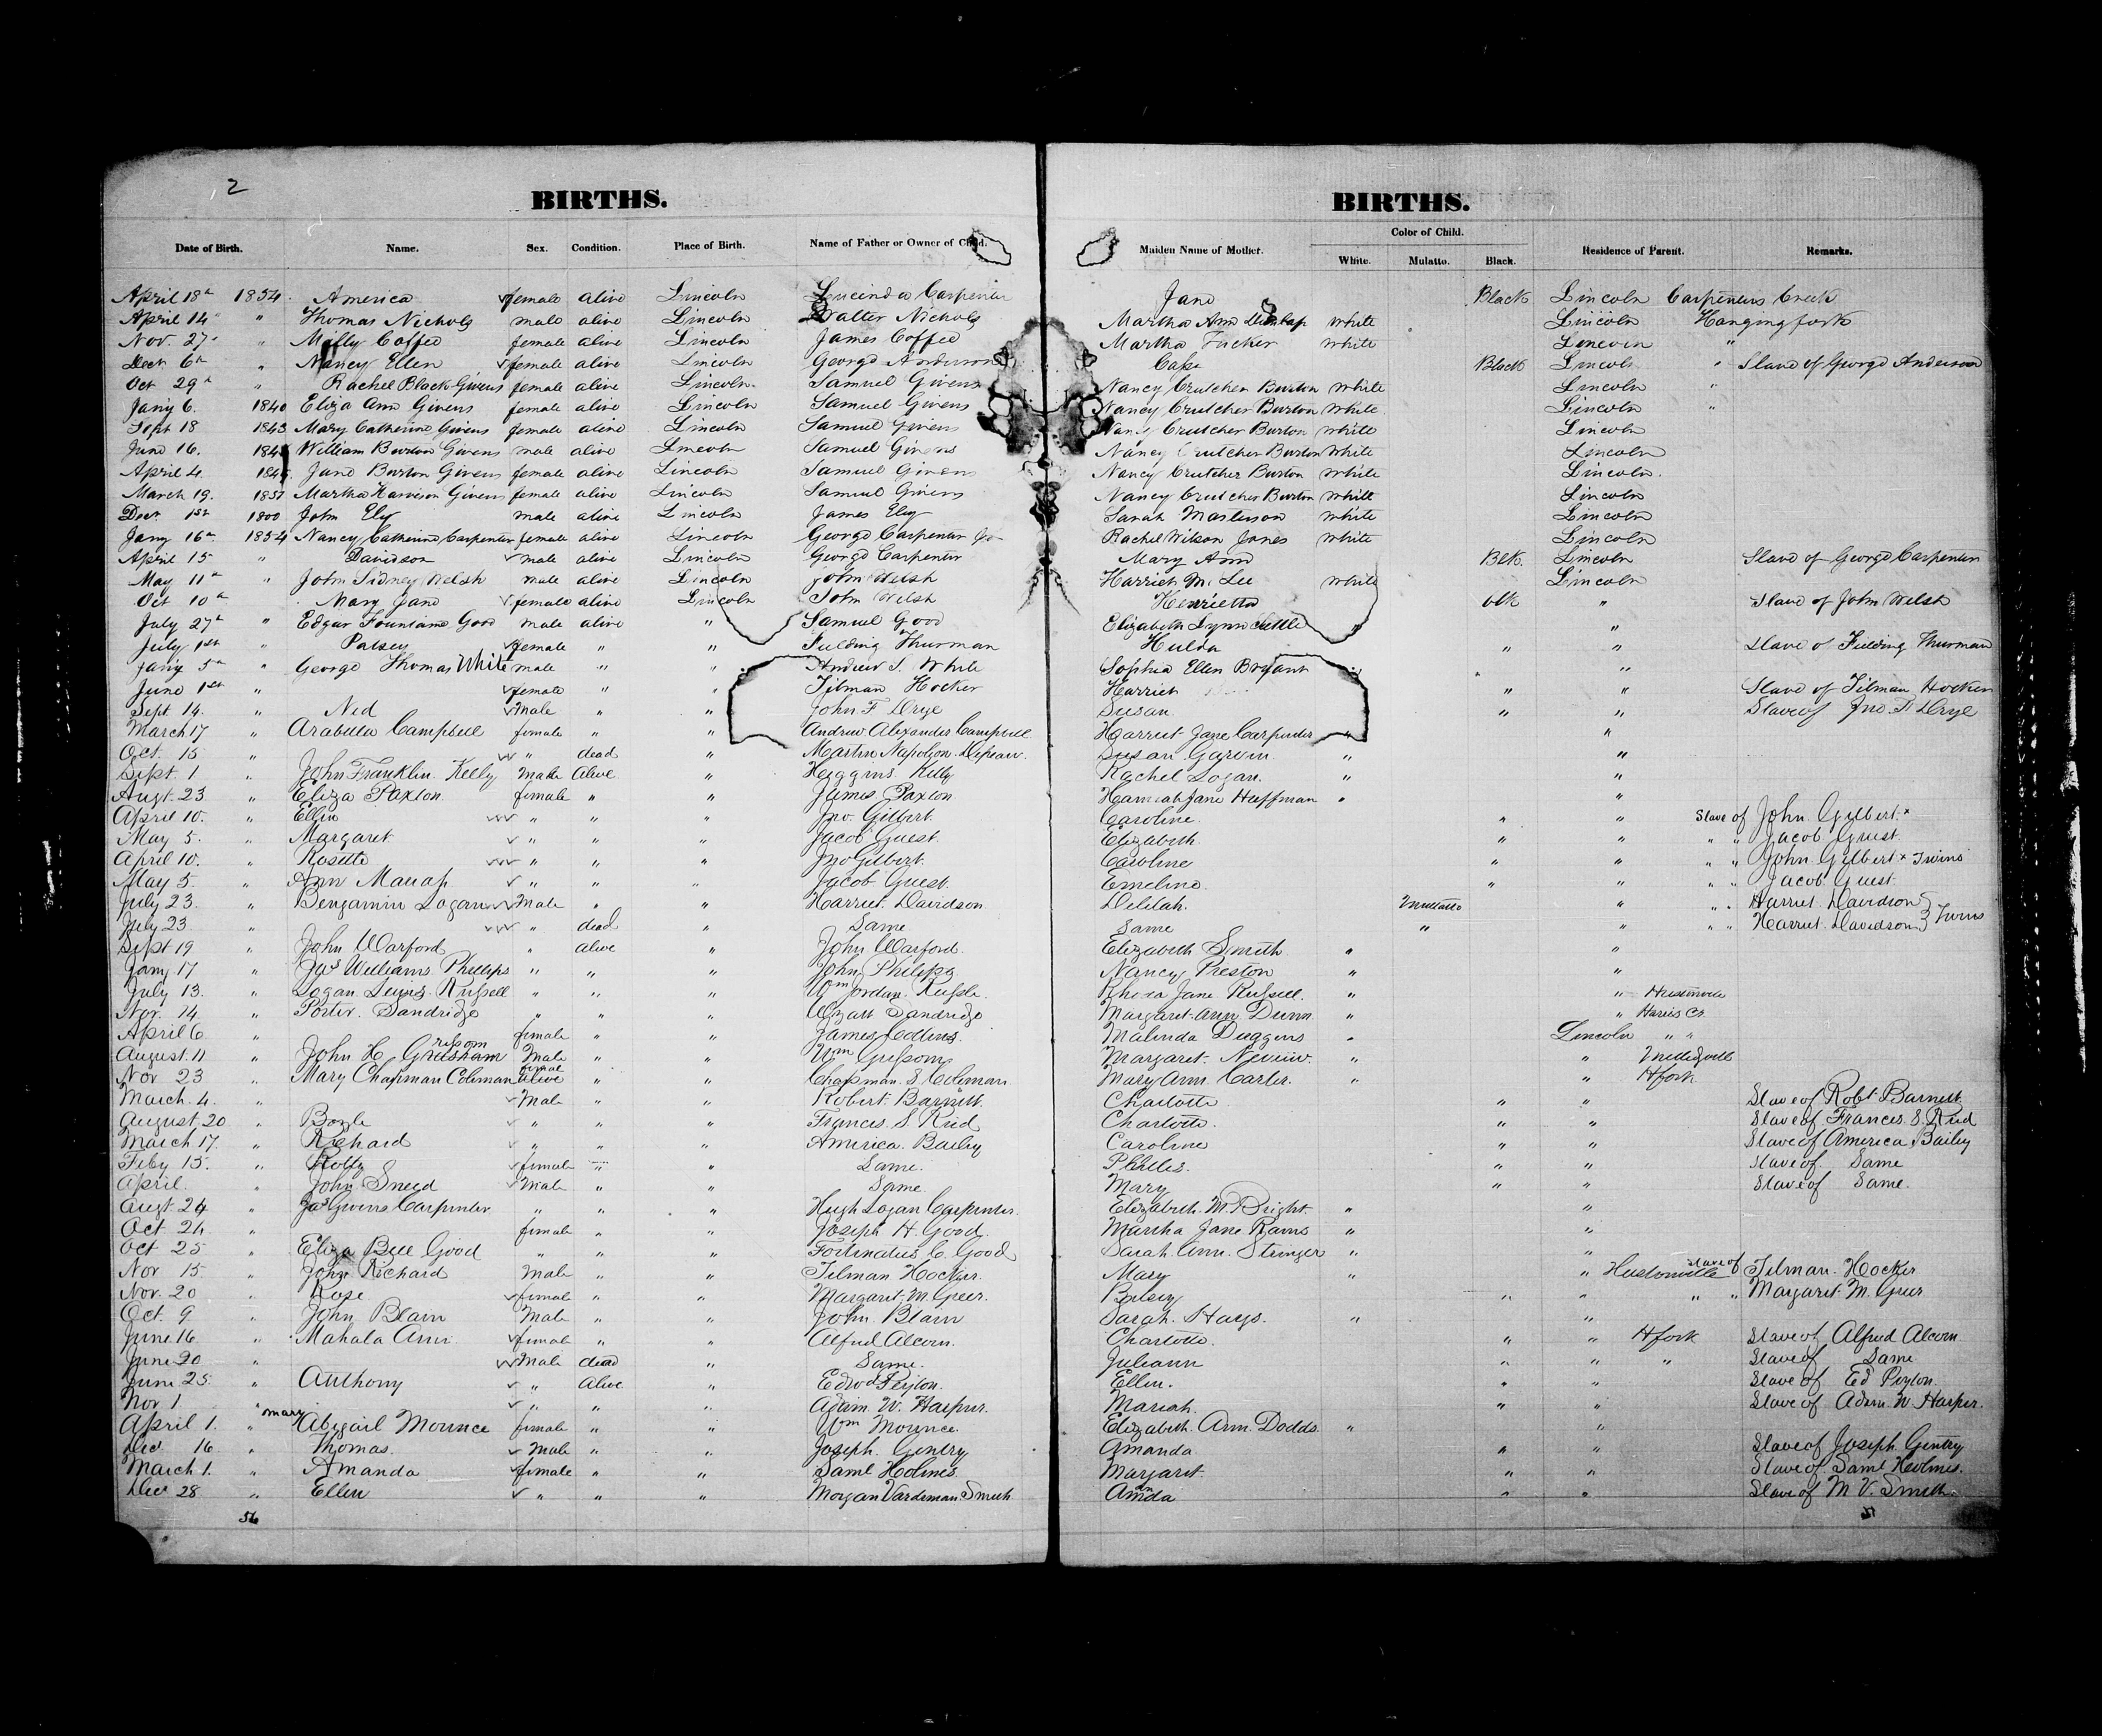 2
BIRTHS. BIRTHS.
Date of Birth. Name. Sex. Condition. Place of Birth. Name of Father or Owner of Child. Maiden Name of Mother. Color of Child. White. Mulatto. Black. Residence of Parent. Remarks.
April 18th 1854. America female alive Lincoln Lucinda Carpenter Jane Black Lincoln Carpenters Creek
April 14 " Thomas Nichols male alive Lincoln Walter Nichols Martha Ann Dunlap white Lincoln Hanging fork
Nov. 27 " Milly Coffee female alive Lincoln James Coffee Martha Tucker white Lincoln "
Dect 6th " Nancy Ellen female alive Lincoln George Anderson Black Lincoln " Slave of George Anderson
Oct 29th " Rachel Black Givens female alive Lincoln Samuel Givens Nancy Crutcher Burton white Lincoln "
Jan'y 6. 1840 Eliza Ann Givens female alive Lincoln Samuel Givens Nancy Crutcher Burton white Lincoln "
Sept 18 1843 Mary Catherine Givens female alive Lincoln Samuel Givens Nancy Crutcher Burton white Lincoln
June 16. William Burton Givens male alive Lincoln Samuel Givens Nancy Crutcher Burton white Lincoln
April 4. Jane Burton Givens female alive Lincoln Samuel Givens Nancy Crutcher Burton white Lincoln
March 19. 1851 Martha Harrison Givens female alive Lincoln Samuel Givens Nancy Crutcher Burton white Lincoln
Dect 1st 1800 John Ely male alive Lincoln James Ely Sarah Masterson white Lincoln
Jany 16th 1854 Nancy Catherine Carpenter female alive Lincoln George Carpenter Jr Rachel Wilson Jones white Lincoln
April 15 " Davidson male alive Lincoln George Carpenter Mary Ann Blk. Lincoln Slave of George Carpenter
May 11th " John Sidney Welsh male alive Lincoln John Welsh Harriet M. Lee white Lincoln
Oct 10th " Mary Jane female alive Lincoln John Welsh Henrietta blk " Slave of John Welsh
July 27th " Edgar Fountaine Good male alive " Samuel Good Elizabeth Lynn Settle " "
July 1st " Patsey female " " Fielding Thurman Hulda " " Slave of Fielding Thurman
Jan'y 5th " George Thomas White male " " Andrew S. White Sophia Ellen Bryant " "
June 1st " female " " Tilman Hocker Harriet " " Slave of Tilman Hocker
Sept. 14. " Ned Male " " John F Drye Susan " " Slave of Jno. F Drye
March 17 " Arabella Campbell female " " Andrew Alexander Campbell Harriet Jane Carpenter " "
Oct. 15 " " dead " Martin Napoleon Depeaw. Susan Garvin " "
Sept. 1 " John Franklin Kelly Male Alive " Huggins Kelly Rachel Logan. " "
Augt. 23 " Eliza Paxton female " " James Paxton Hannah Jane Huffman " "
April 10. " Ellen " " " Jno. Gilbert. Caroline. " " Slave of John Gilbert. x
May 5. " Margaret " " " Jacob Guest. Elizabeth " " " " Jacob Guest.
April 10. " Rosetta " " " Jno Gilbert. Caroline " " " " John Gilbert x Twins
May 5. " Ann Mariah " " " Jacob Guest. Emeline. " " " " Jacob Guest.
July 23. " Benjamin Logan Male " " Harriet Davidson Delilah. Mulatto " " " Harriet Davidson }
July 23 " " dead " Same Same " " " " Harriet Davidson } Twins
Sept 19 " John Warford " alive " John Warford. Elizabeth Smith " "
Jany 17 " Jas Williams Phillips " " " John Philips Nancy Preston " "
July 13. " Logan Lewis Russell " " " Wm Jordan Russle. Jane Russell. " " Hustonville
Nov. 14 " Porter Sandridge " " " Wyatt Sandridge Margaret Ann Dunn " " Harris Cr.
April 6 " female " " James Collins. Malinda Duggins " Lincoln " "
August 11 " John H Greesham rissom Male " " Wm Grissom Margaret " "
Nov 23 " Mary Chapman Coleman alive femal " " Chapman S. Coleman Mary Ann Carter. " " Hfork
March. 4. " Male " " Robert Barnett. Charlotte " " Slave of Robt Barnett
August 20 " Boyle " " " Frances S Reid Charlotte. " " Slave of Frances S. Reid
March 17. " Richard " " " America Bailey Caroline " " Slave of America Bailey
Feby 15. " female " " Same. Philles. " " Slave of Same
April. " John Sneed Male " " Same. Mary " " Slave of Same.
Augt 24 " Jas Givens Carpenter " " " Hugh Logan Carpenter. Elizabeth M. Bright. " "
Oct. 24 " female " " Joseph H Good. Martha Jane Rains " "
Oct 25 " Eliza Bell Good " " " Fortinatus C. Good Sarah Ann Stringer " "
Nov 15 " John Richard Male " " Tilman Hocker. Mary " " Hustonville slave of Tilman Hocker
Nov. 20 " Rose female " " Margaret M. Greer. Betsey " " " " Margaret M. Greer
Oct. 9 " John Blain Male " " John Blain Sarah Hays. " "
June 16 " Mahala Ann female " " Alfred Alcorn. Charlotte. " " Hfork Slave of Alfred Alcorn
June 20 " Male dead " Same. Juliann " " " Slave of Same
June 25. " Anthony " Alive " Edwd Peyton. Ellen. " " Slave of Ed Peyton.
Nov 1 " " " " Adam. W. Harper. Mariah. " " Slave of Adam W Harper.
April 1. " Mary Abigail Mounce female " " Wm Mounce. Elizabeth Ann Dodds. " "
Dec 16 " Thomas. Male " " Joseph Gentry Amanda " " Slave of Joseph Gentry
March 1. " Amanda female " " Saml Holmes. Margaret " " Slave of Saml Holmes.
Dec 28 " Ellen " " " Morgan Vardeman Smith Amanda " " Slave of M V. Smith.
56